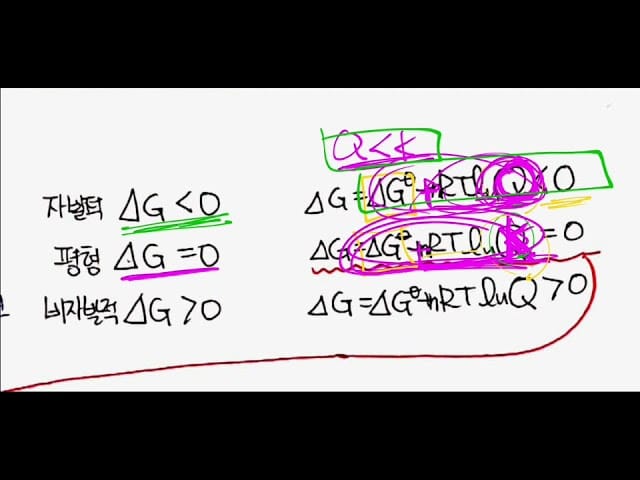 Q<<K
자발적 ΔG<0 ΔG=ΔG°+nRTlnQ<0
평형 ΔG=0 ΔG=ΔG°+nRTlnK=0
비자발적 ΔG>0 ΔG=ΔG°+nRTlnQ>0